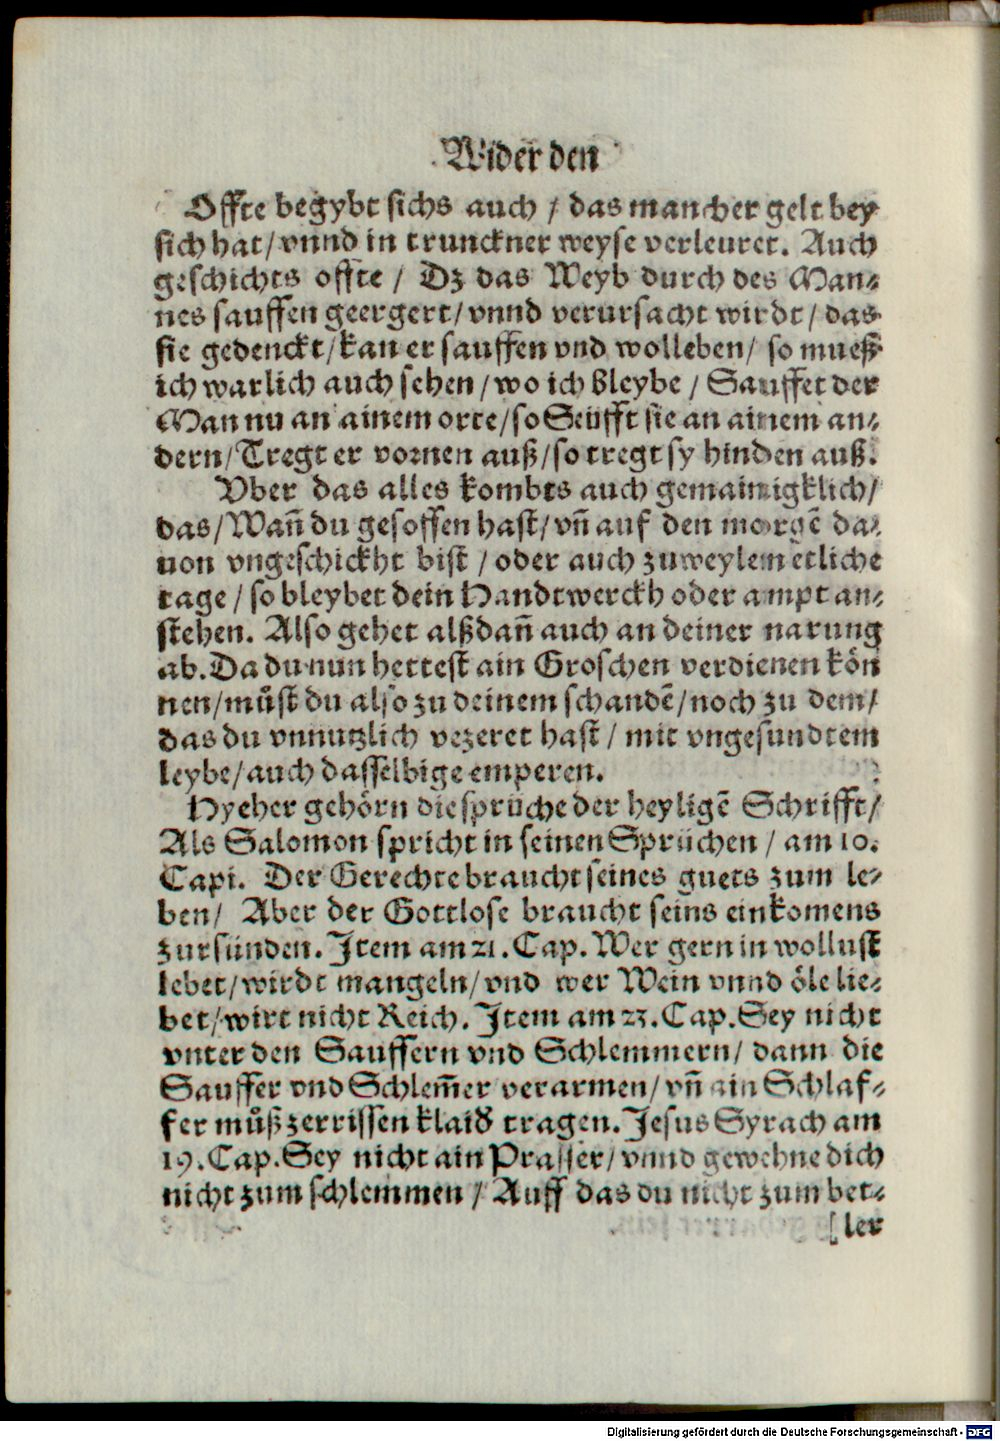 Wider den
Offte begybt sichs auch / das mancher gelt bey
sich hat / vnnd in trunckner weyse verleuret. Auch
geschichts offte / Dz das Weyb durch des Man⸗
nes sauffen geergert / vnnd verursacht wirdt / das
sie gedenckt / kan er sauffen vnd wolleben / so mueß
ich warlich auch sehen / wo ich bleybe / Sauffet der
Man nu an ainem orte / so Seüfft sie an ainem an⸗
dern / Tregt er vornen auß / so tregt sy hinden auß.
Vber das alles kombts auch gemainigklich /
das / Wañ du gesoffen hast / vñ auf den morgẽ da⸗
uon vngeschickht bist / oder auch zuweylem etliche
tage / so bleybet dein Handtwerckh oder ampt an⸗
stehen. Also gehet alßdañ auch an deiner narung
ab. Da du nun hettest ain Groschen verdienen kön
nen / můst du also zu deinem schandẽ / noch zu dem /
das du vnnutzlich vezeret hast / mit vngesundtem
leybe / auch dasselbige emperen.
Hyeher gehörn die sprüche der heyligẽ Schrifft /
Als Salomon spricht in seinen Sprüchen / am 10.
Capi. Der Gerechte braucht seines guets zum le⸗
ben / Aber der Gottlose braucht seins einkomens
zur sünden. Item am 21. Cap. Wer gern in wollust
lebet / wirdt mangeln / vnd wer Wein vnnd öle lie⸗
bet / wirt nicht Reich. Item am 23. Cap. Sey nicht
vnter den Sauffern vnd Schlemmern / dann die
Sauffer vnd Schlem̃er verarmen / vñ ain Schlaf⸗
fer můß zerrissen klaid tragen. Jesus Syrach am
19. Cap. Sey nicht ain Prasser / vnnd gewehne dich
nicht zum schlemmen / Auff das du nicht zum bet⸗
ler
Digitalisierung gefördert durch die Deutsche Forschungsgemeinschaft - DFG